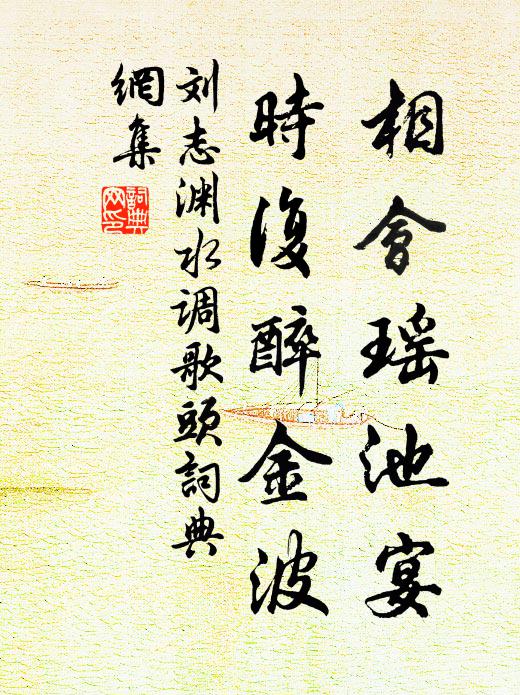 相會瑶池宴
時復醉金波
刘志渊水调歌頭詞典
網集
詞典
网印